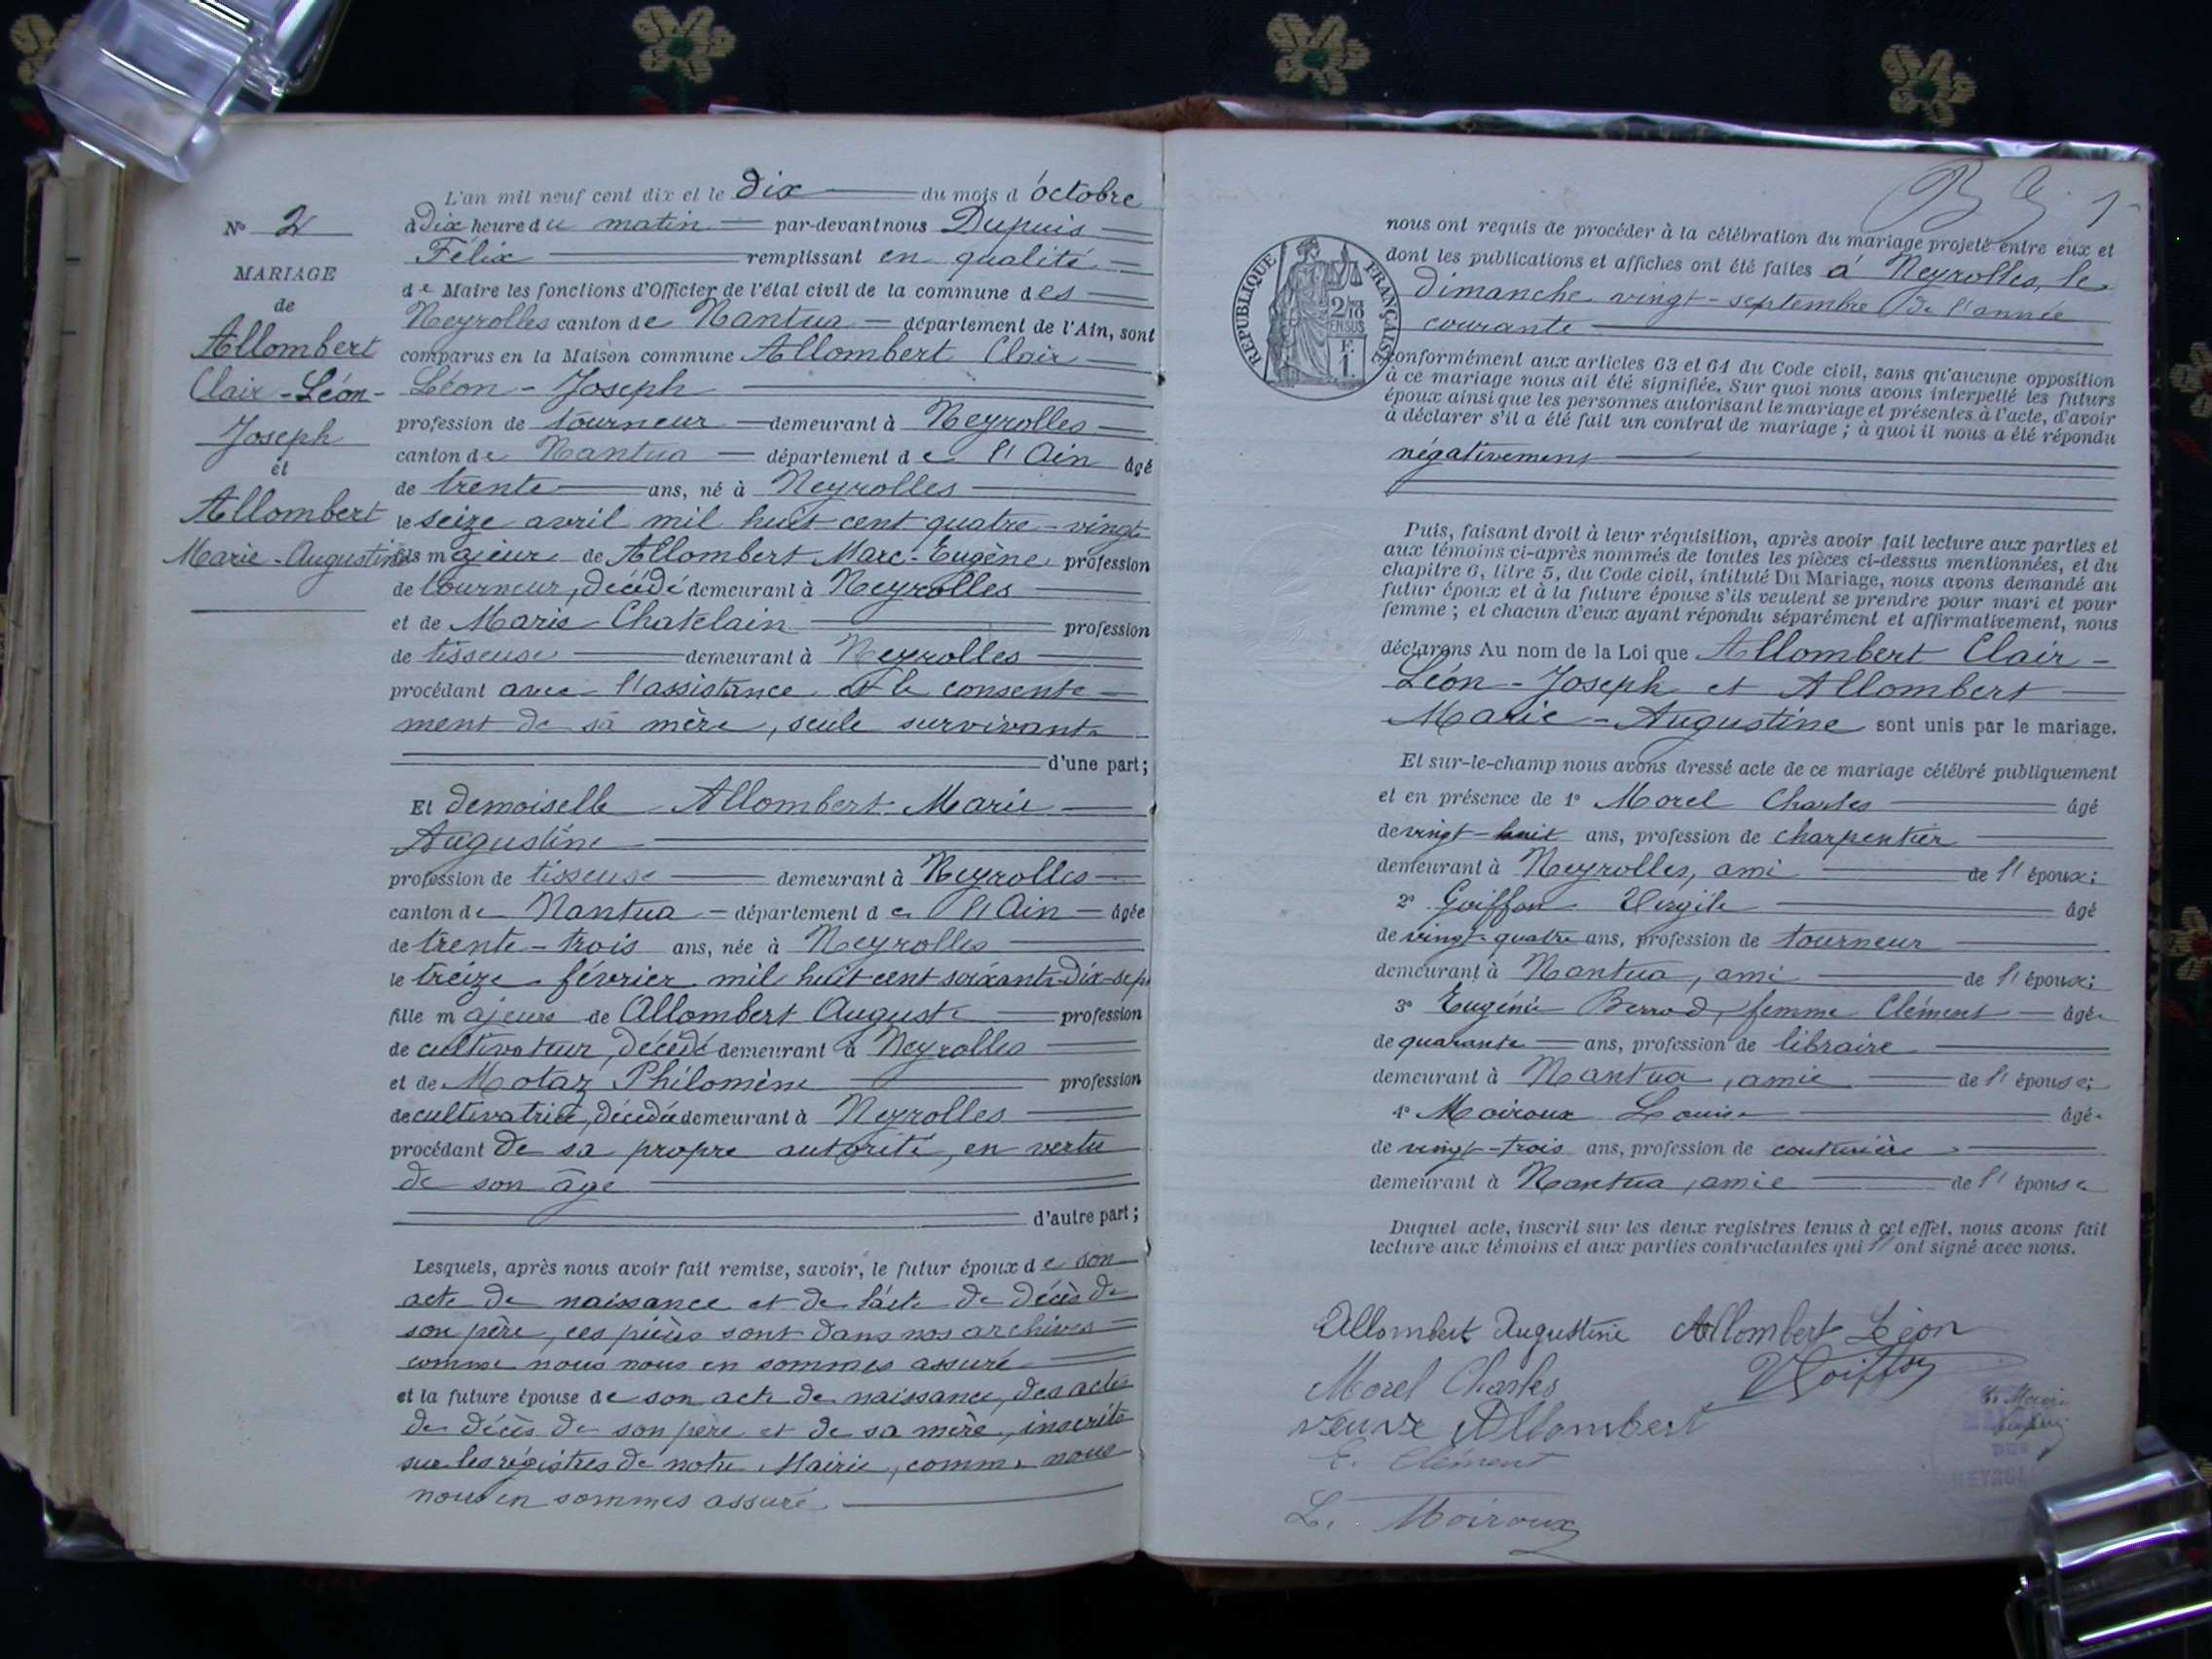 L'an mil neuf cent dix et le dix du mois d'octobre
N° 2
à dix heure du matin par-devant nous Dupuis
Félix remplissant en qualité
MARIAGE
de Maire les fonctions d'Officier de l'état civil de la commune des
de
Neyrolles canton de Nantua département de l'Ain, sont
Allombert
comparus en la Maison commune Allombert Clair
Clair-Léon-
Léon-Joseph
Joseph
profession de tourneur demeurant à Neyrolles
et
canton de Nantua département de l'Ain âgé
de trente ans, né à Neyrolles
Allombert
le seize avril mil huit cent quatre-vingt
Marie-Augustine
fils majeur de Allombert Marc-Eugène profession
de tourneur, décédé demeurant à Neyrolles
et de Marie Chatelain profession
de tisseuse demeurant à Neyrolles
procédant avec l'assistance et le consente-
ment de sa mère, seule survivante
d'une part;
Et demoiselle Allombert Marie
Augustine
profession de tisseuse demeurant à Neyrolles
canton de Nantua département de l'Ain âgée
de trente-trois ans, née à Neyrolles
le treize février mil huit cent soixante-dix-sept
fille majeure de Allombert Auguste profession
de cultivateur, décédé demeurant à Neyrolles
et de Motaz Philomène profession
de cultivatrice, décédée demeurant à Neyrolles
procédant de sa propre autorité, en vertu
de son âge
d'autre part;
Lesquels, après nous avoir fait remise, savoir, le futur époux de son
acte de naissance et de l'acte de décès de
son père, ces pièces sont dans nos archives
comme nous nous en sommes assuré
et la future épouse de son acte de naissance, des actes
de décès de son père et de sa mère, inscrits
sur les régistres de notre Mairie, comme nous
nous en sommes assuré.
nous ont requis de procéder à la célébration du mariage projeté entre eux et
dont les publications et affiches ont été faites à Neyrolles, le
dimanche vingt-septembre de l'année
courante
REPUBLIQUE FRANÇAISE
2/10
EN SUS
F.
1.
conformément aux articles 63 et 64 du Code civil, sans qu'aucune opposition
à ce mariage nous ait été signifiée. Sur quoi nous avons interpellé les futurs
époux ainsi que les personnes autorisant le mariage et présentes à l'acte, d'avoir
à déclarer s'il a été fait un contrat de mariage; à quoi il nous a été répondu
négativement
Puis, faisant droit à leur réquisition, après avoir fait lecture aux parties et
aux témoins ci-après nommés de toutes les pièces ci-dessus mentionnées, et du
chapitre 6, titre 5, du Code civil, intitulé Du Mariage, nous avons demandé au
futur époux et à la future épouse s'ils veulent se prendre pour mari et pour
femme; et chacun d'eux ayant répondu séparément et affirmativement, nous
déclarons Au nom de la Loi que Allombert Clair-
Léon-Joseph et Allombert
Marie-Augustine sont unis par le mariage.
Et sur-le-champ nous avons dressé acte de ce mariage célébré publiquement
et en présence de 1° Morel Charles âgé
de vingt-huit ans, profession de charpentier
demeurant à Neyrolles, ami de l'époux;
2° Goiffon Virgile âgé
de vingt-quatre ans, profession de tourneur
demeurant à Nantua, ami de l'époux;
3° Eugénie Berrod, femme Clément âgée
de quarante ans, profession de libraire
demeurant à Nantua, amie de l'épouse;
4° Moiroux Louise âgée
de vingt-trois ans, profession de couturière
demeurant à Nantua, amie de l'épouse
Duquel acte, inscrit sur les deux registres tenus à cet effet, nous avons fait
lecture aux témoins et aux parties contractantes qui ont signé avec nous.
Allombert Augustine Allombert Léon
Morel Charles V Goiffon
veuve Allombert
Le Maire
E. Clément
L. Moiroux